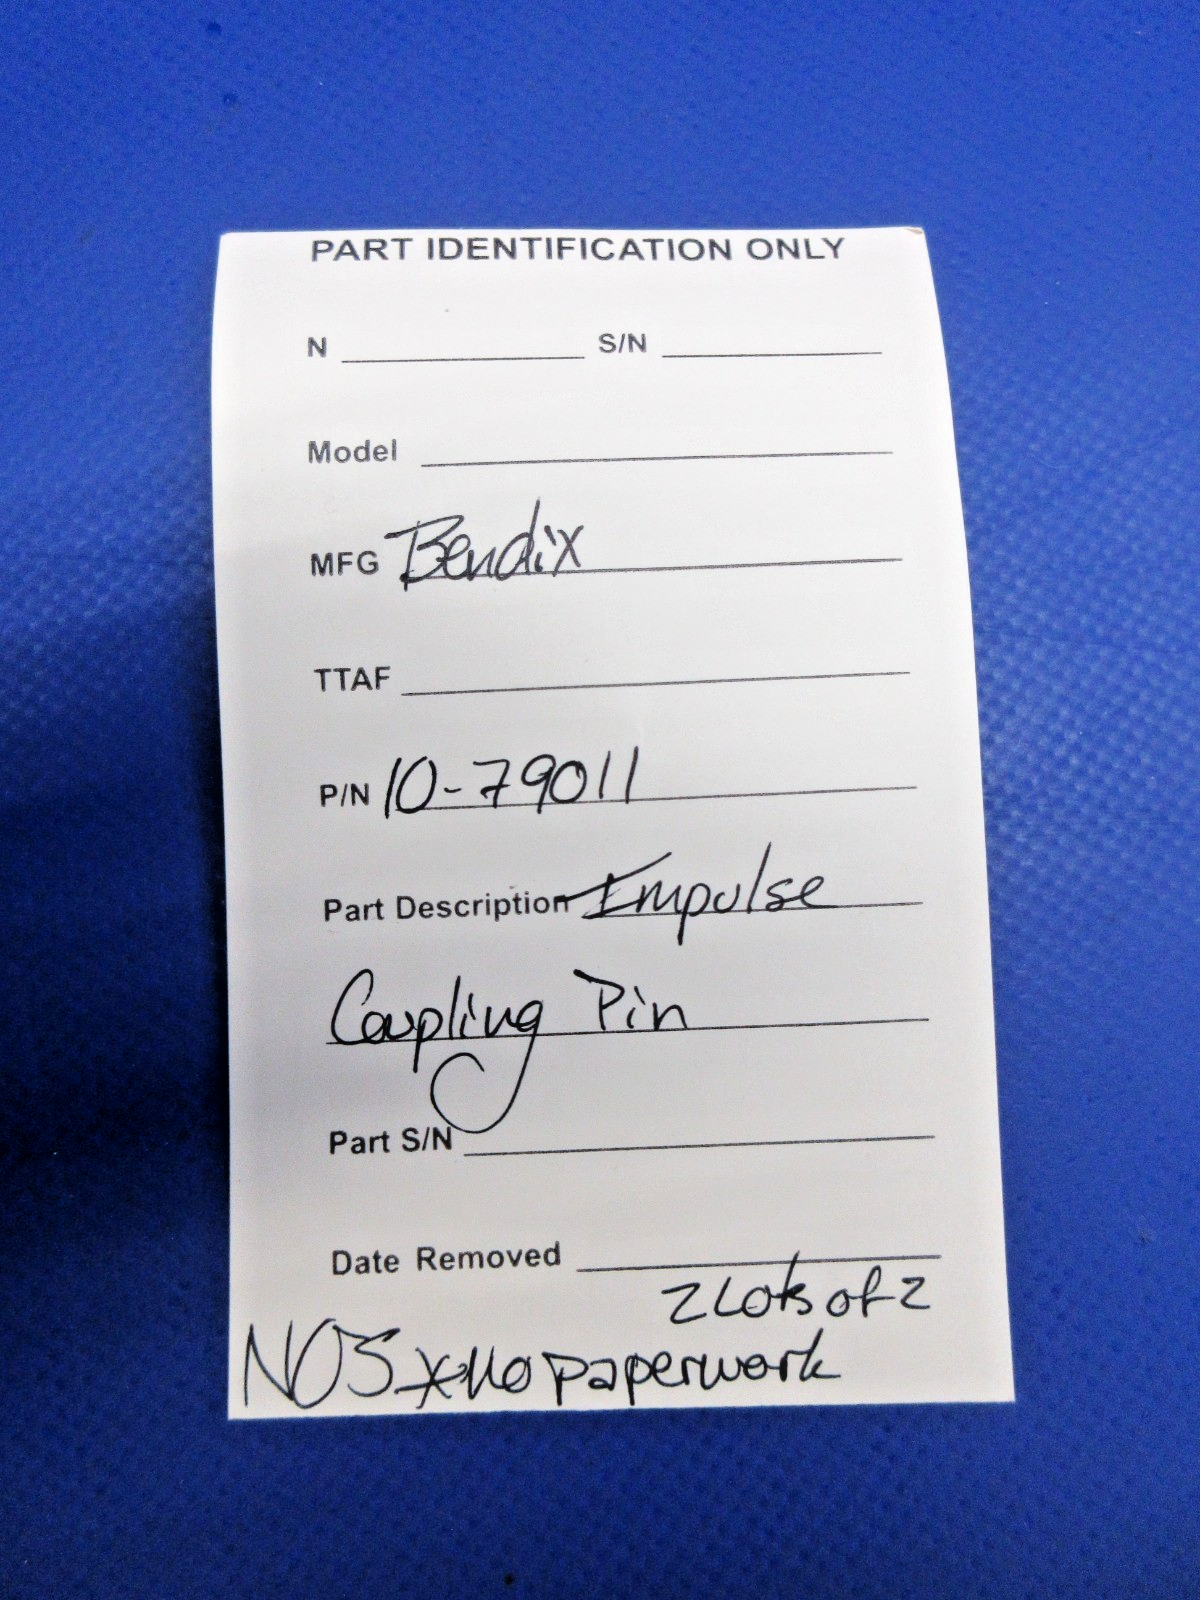 PART IDENTIFICATION ONLY
N S/N
Model
MFG Bendix
TTAF
P/N 10-79011
Part Description Impulse
Coupling Pin
Part S/N
Date Removed
2 Lots of 2
NOS *no paperwork